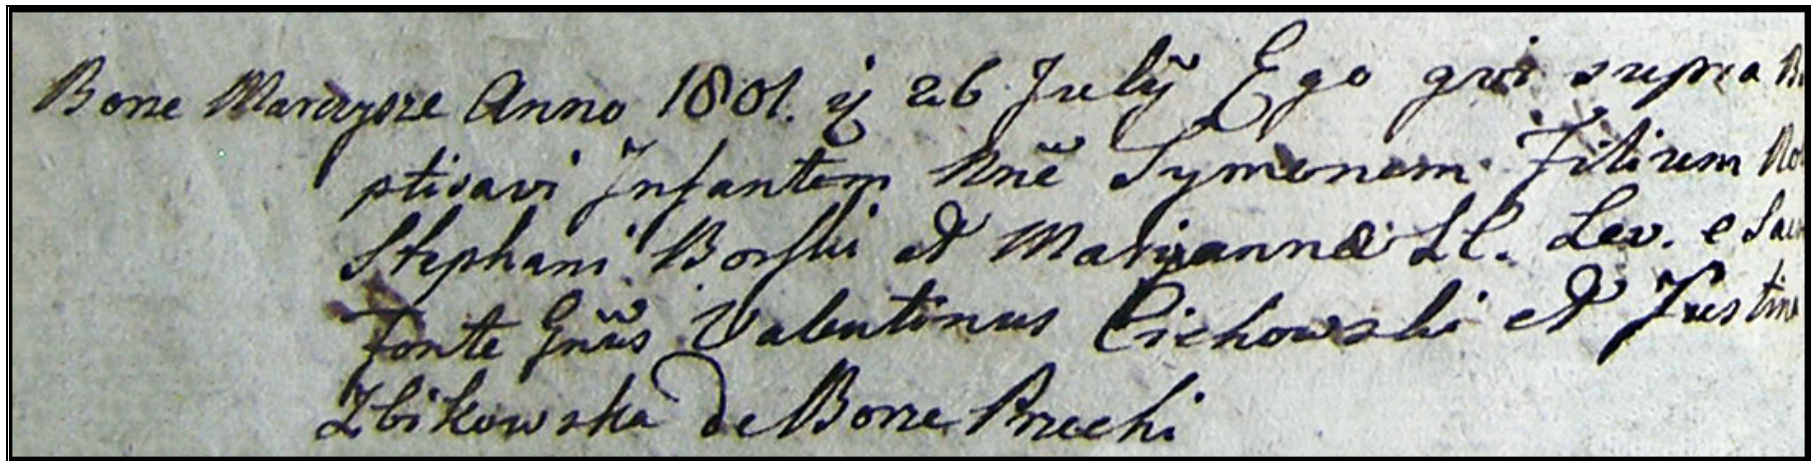 Borre Marczysze Anno 1801. ij 26 Julij Ego qui supra
ptisavi Infantem Nñe Symonem Filium
Stephani Borski et Maryannæ LC. Lev. e Sac
Fonte Gnũs Valentinus Cichowski et Justin
Zbikowska de Borre Prrechi